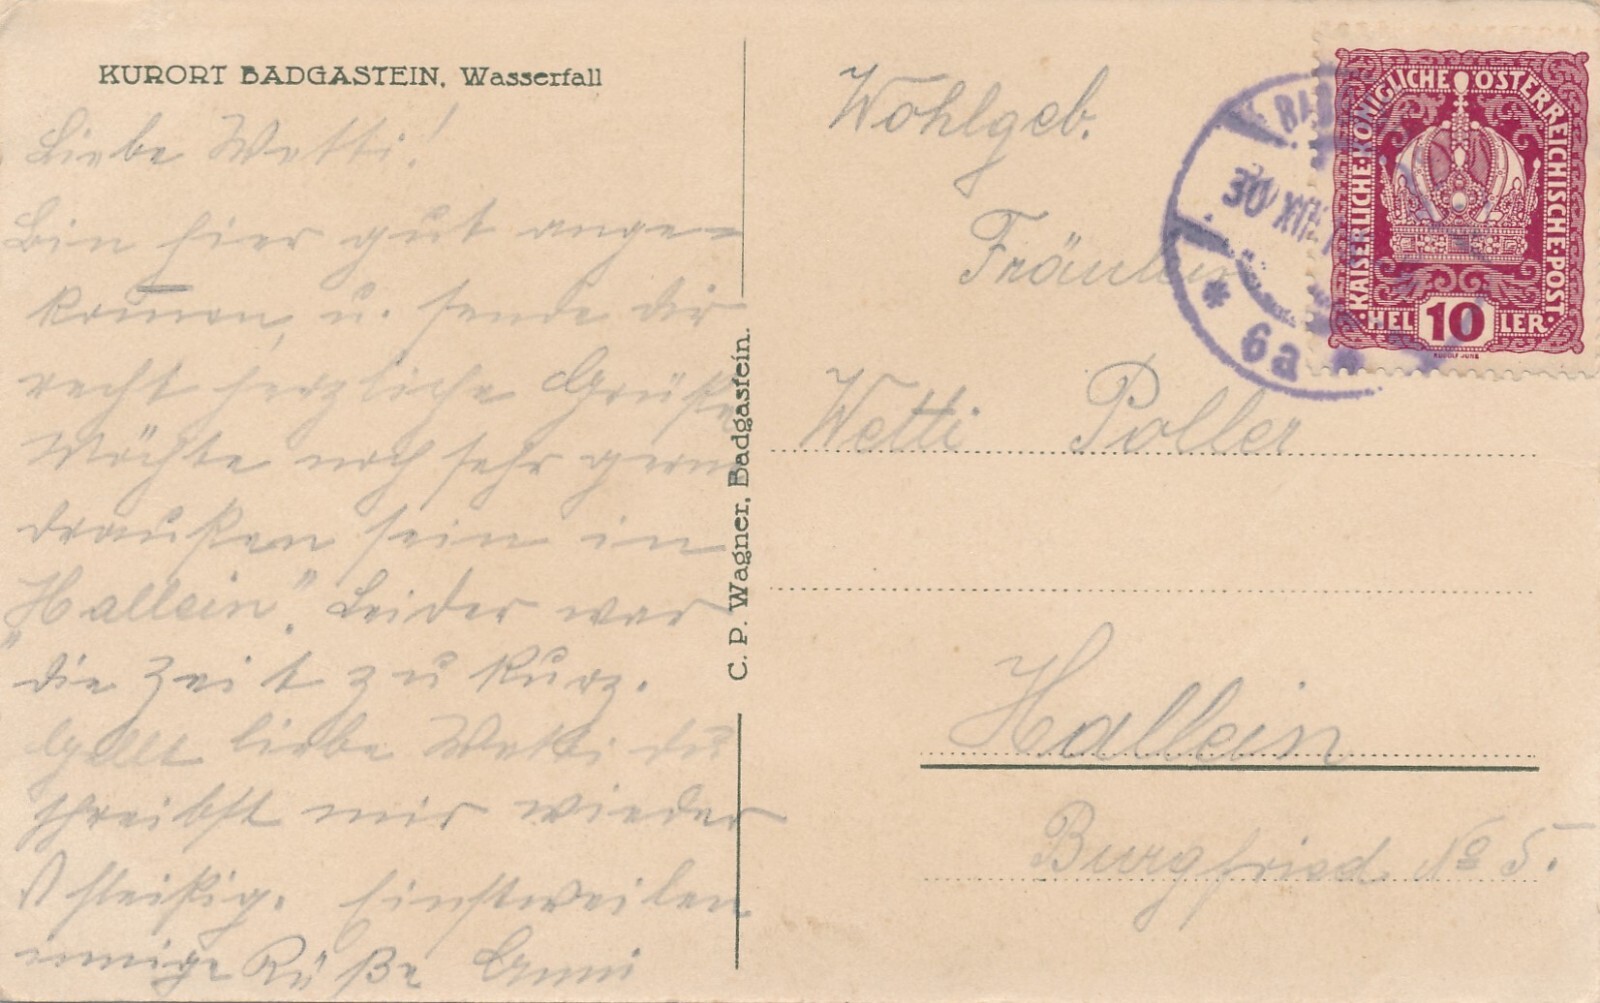 KURORT BADGASTEIN, Wasserfall
Liebe Wetti!
Bin hier gut ange=
kom̅en, u. sende dir
recht herzliche Grüße
Möchte noch sehr gern
draußen sein in
„Hallein". Leider war
die Zeit zu kurz.
Gellt liebe Wetti du
schreibst mir wieder
fleißig. Einstweilen
innige Küße Anni
C. P. Wagner, Badgastein.
Wohlgeb.
Fräulein
Wetti Poller
Hallein
Burgfried No 5.
30 XII
* 6a *
KAISERLICHE·KÖNIGLICHE ÖSTERREICHISCHE·POST
HELLER 10
RUDOLF JUNK